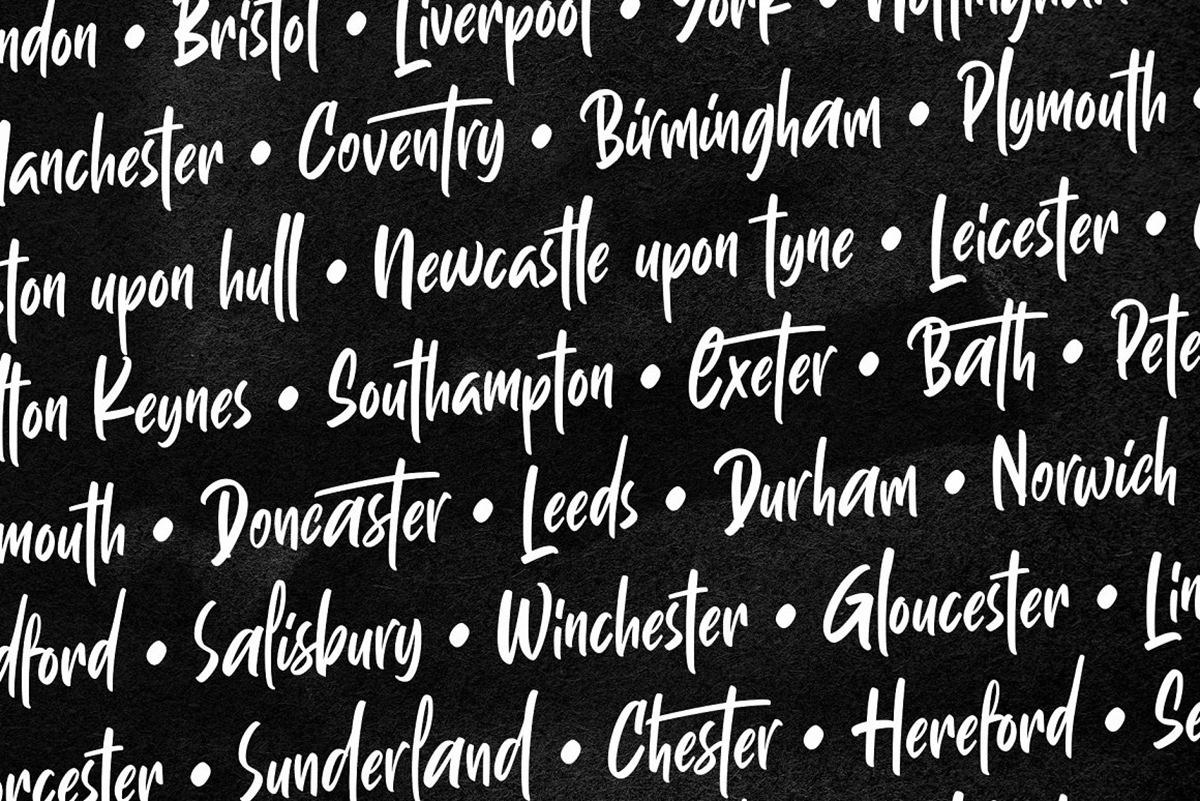 ndon • Bristol • Liverpool • York • Nottingham
anchester • Coventry • Birmingham • Plymouth •
ston upon hull • Newcastle upon tyne • Leicester •
lton Keynes • Southampton • Exeter • Bath • Pete
mouth • Doncaster • Leeds • Durham • Norwich
dford • Salisbury • Winchester • Gloucester • Lin
orcester • Sunderland • Chester • Hereford • Se